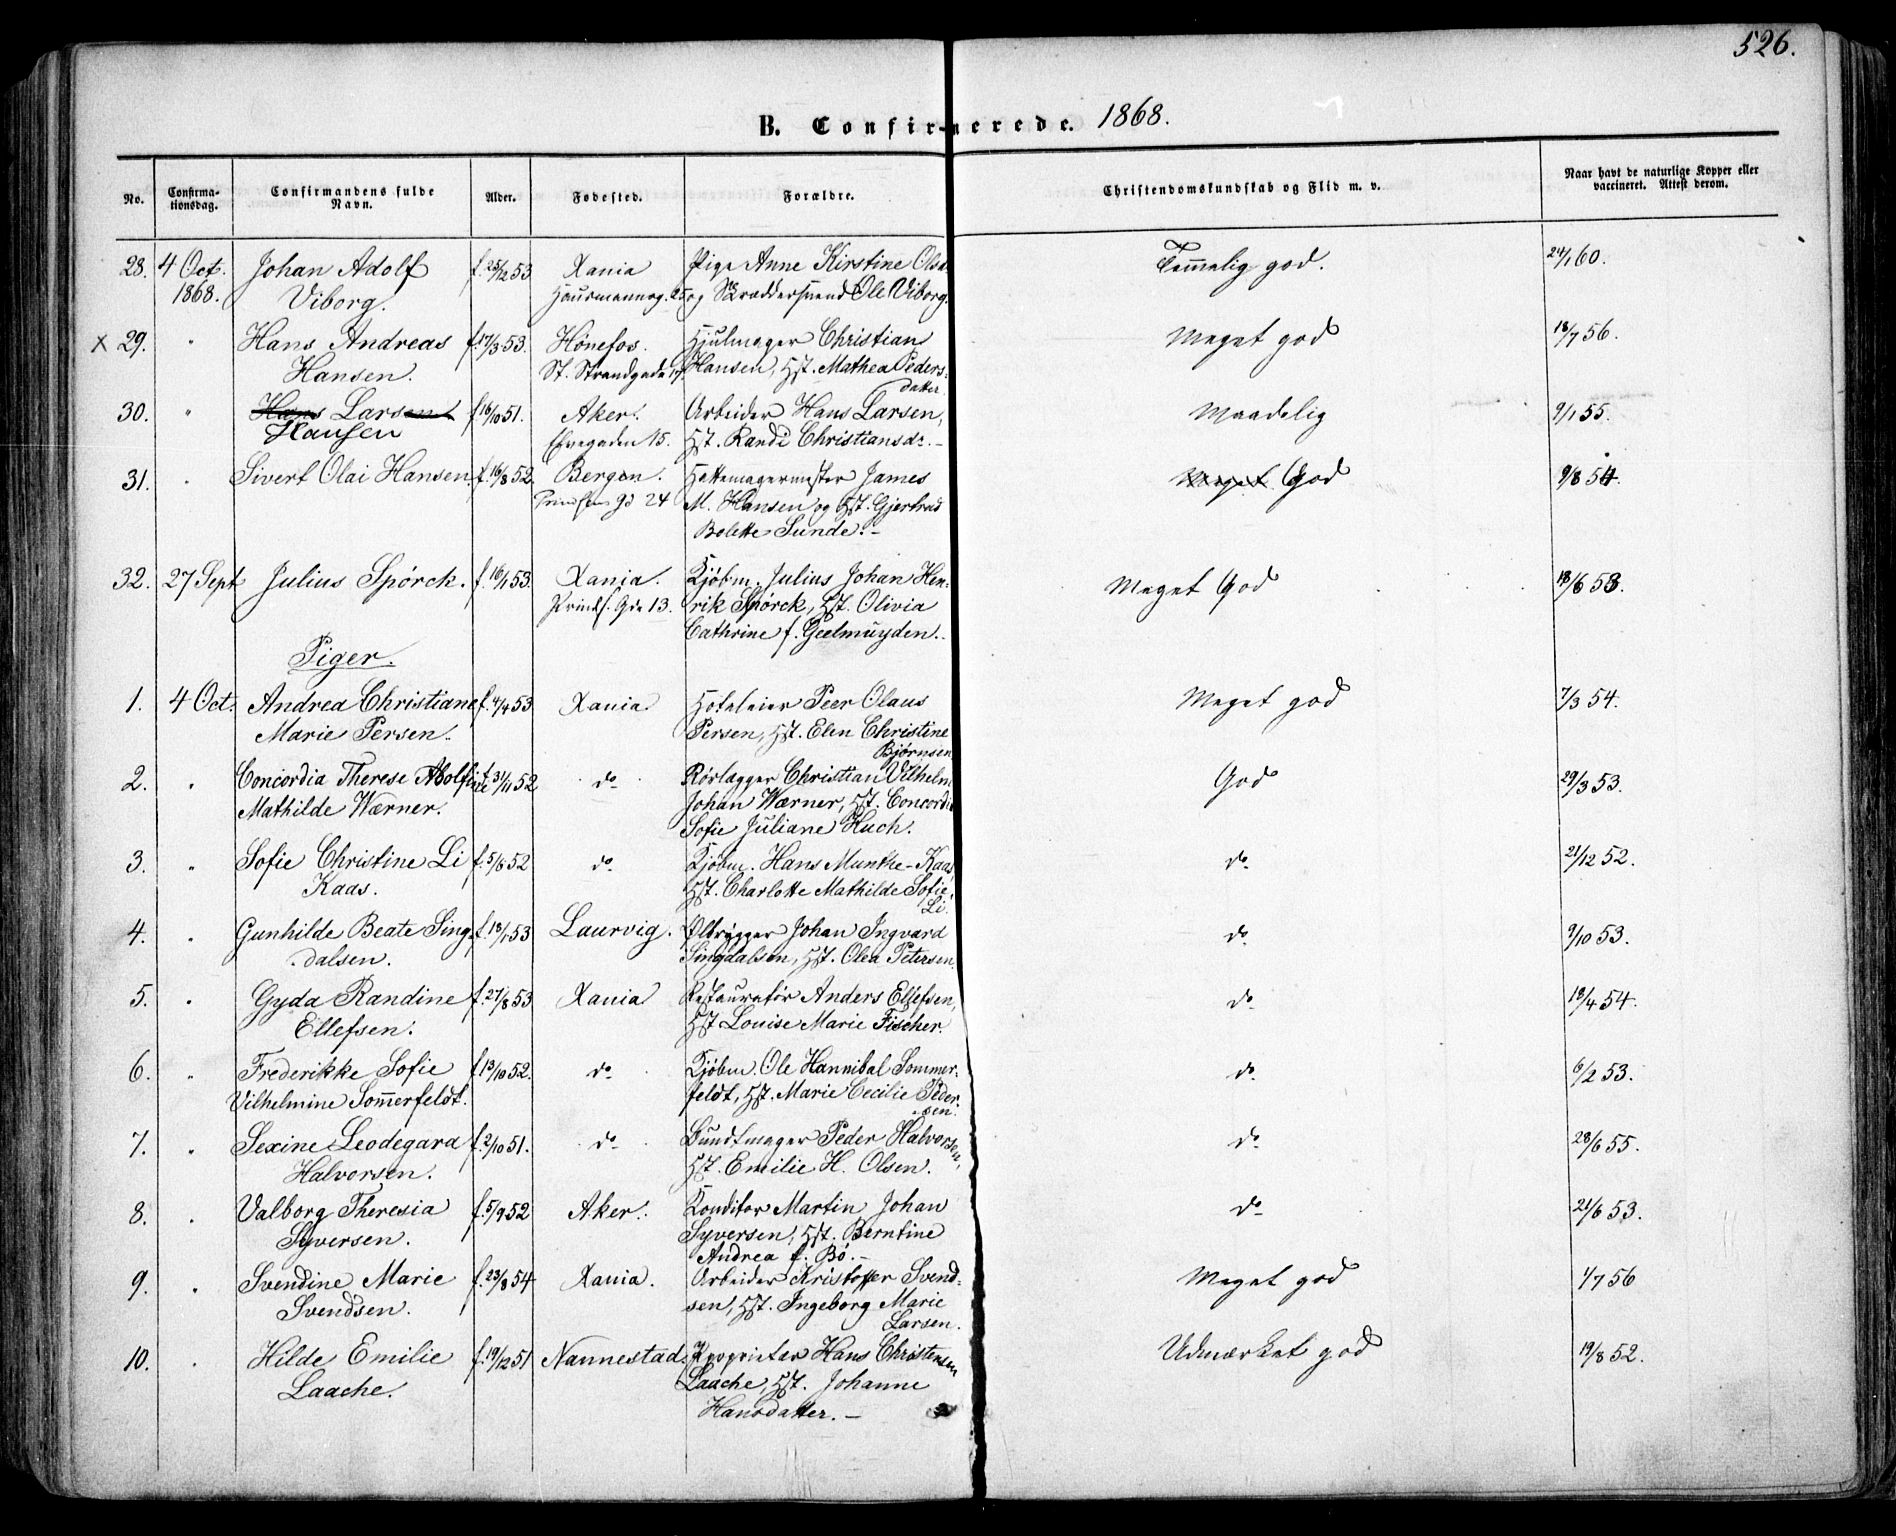 526.
B. Confirmerede. 1868.
No. | Confirmationsdag. | Confirmandens fulde Navn. | Alder. | Fødested. | Forældre. | Christendomskundskab og Flid m. v. | Naar havt de naturlige Kopper eller vaccineret. Attest derom.
28. 4 Oct. Johan Adolf f. 25/12 53 Xania Pige Anne Kirstine Olsd. Temmelig god. 24/1 60.
1868. Viborg. Hausmannsg. 25 og Skræddersvend Ole Viborg.
x 29. " Hans Andreas f. 17/3 53. Hönefos. Hjulmager Christian Meget god 18/7 56.
Hansen. St. Strandgade 17. Hansen, Hst. Mathea Peders-
datter
30. " Hans Larsen f. 16/10 51. Aker. Arbeider Hans Larsen, Maadelig 9/1 55.
Hansen 15. Hst. Randi Christiansdr. –
31. " Sivert Olai Hansen f. 16/8 52. Bergen. Hattemagermester James Meget God 9/8 54.
Prindsens Gd 24 M. Hansen og Hst. Gjertrud
Bolette Sunde. –
32. 27 Sept Julius Spørck. f. 16/1 53. Xania. Kjøbm. Julius Johan Hen- Meget God 18/6 53.
Prinds. Gde 13. rik Spørck, Hst. Olivia
Cathrine f. Geelmuyden.
Piger.
1. 4 Oct. Andrea Christiane f. 4/4 53 Xania Hoteleier Peer Olaus Meget god 7/3 54.
Marie Persen. Persen, Hst. Elen Christine
Bjørnsen
2. " Concordia Therese Adolfine f. 3/11 52 do Rørlægger Christian Vilhelm God 29/3 53.
Mathilde Wærner. Johan Wærner, Hst. Concordia
Sofie Juliane Huch.
3. " Sofie Christine Li f. 5/8 52 do Kjøbm. Hans Munthe-Kaas, do 21/12 52.
Kaas. Hst. Charlotte Mathilde Sofie
Li.
4. " Gunhilde Beate Sing- f. 18/1 53 Laurvig. Ølbrygger Johan Ingvard do 9/10 53.
dalsen. Singdalsen, Hst. Olea Petersen.
5. " Gyda Randine f. 27/8 53 Xania Restauratör Anders Ellefsen, do 18/4 54.
Ellefsen. Hst Louise Marie Fischer.
6. " Frederikke Sofie f. 13/10 52. do Kjøbm. Ole Hannibal Sommer- do 6/2 53.
Vilhelmine Som̅erfeldt. feldt, Hst. Marie Cecilie Peder-
sen.
7. " Sexine Leodegara f. 2/10 51. do Bundtmager Peder Halvorsen, do 28/6 55.
Halvorsen. Hst. Emilie H. Olsen.
8. " Valborg Theresia f. 5/9 52 Aker. Konditor Martin Johan do 21/6 53.
Syversen. Syversen, Hst. Berntine
Andrea f. Bö. –
9. " Svendine Marie f. 23/8 54 Xania. Arbeider Kristoffer Svend- Meget god 1/7 56
Svendsen. sen, Hst. Ingeborg Marie
Larsen.
10. " Hilde Emilie f. 19/12 51 Nannestad. Proprietær Hans Christensen Udmærket god 19/8 52.
Laache. Laache, Hst. Johanne
Hansdatter. –